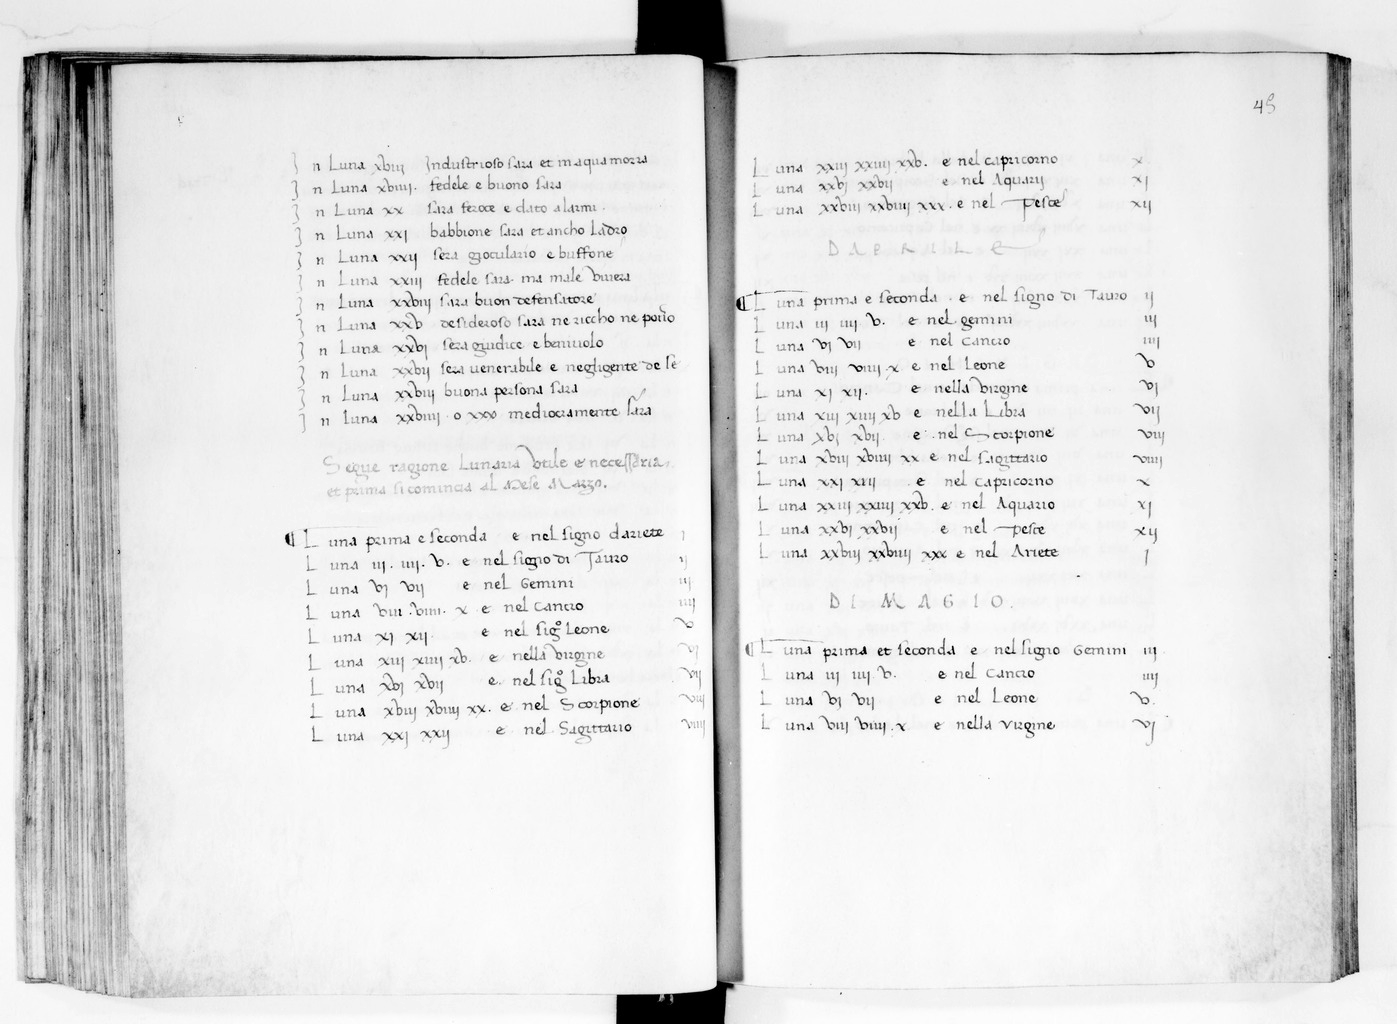 In Luna xviii Industrioso sara et in aqua morra
In Luna xviiii. fedele e buono sara
In Luna xx sara feroce e dato alarmi.
In Luna xxi babbione sara et ancho Ladro
In Luna xxii sera gioculario e buffone
In Luna xxiii fedele sara. ma male vivera
In Luna xxviii sara buon defensatore
In Luna xxv desideroso sara ne riccho ne povero
In Luna xxvi sera giudice e benivolo
In Luna xxvii sera venerabile e negligente de se
In Luna xxviii buona persona sara
In Luna xxviiii o xxx mediocramente sara
Segue ragione Lunaria Vtile e necessaria.
et prima si comincia al Mese Marzo.
Luna prima e seconda e nel signo dariete I
Luna iii. iiii. v. e nel signo di Tauro ii
Luna vi vii e nel Gemini iii
Luna viii .viiii. x e nel Cancro iiii
Luna xi xii. e nel sigo Leone v
Luna xiii xiiii xv. e nella Virgine vi
Luna xvi xvii e. nel sigo Libra vii
Luna xviii xviiii xx. e nel Scorpione viii
Luna xxi xxii e nel Sagittario viiii
45
Luna xxiii xxiiii xxv. e nel capricorno x.
Luna xxvi xxvii e nel Aquarij xi
Luna xxviii xxviiii xxx. e nel Pesce xii
DAPRILE
Luna prima e seconda . e nel signo di Tauro ii
Luna iii iiii v. e nel gemini iii
Luna vi vii e nel Cancro iiii
Luna viii viiii x e nel Leone v
Luna xi xii. e nella Virgine vi
Luna xiii xiiii xv e nella Libra vii
Luna xvi xvii. e . nel Scorpione viii
Luna xviii xviiii xx e nel sagittario viiii
Luna xxi xxii e nel Capricorno x
Luna xxiii xxiiii xxv. e nel Aquario xi
Luna xxvi xxvii e nel pesce xii
Luna xxviii xxviiii xxx e nel Ariete I
DI MAGIO.
Luna prima et seconda e nel signo Gemini iii
Luna iii iiii v. e nel Cancro iiii
Luna vi vii e nel Leone v.
Luna viii viiii . x e nella Virgine vi